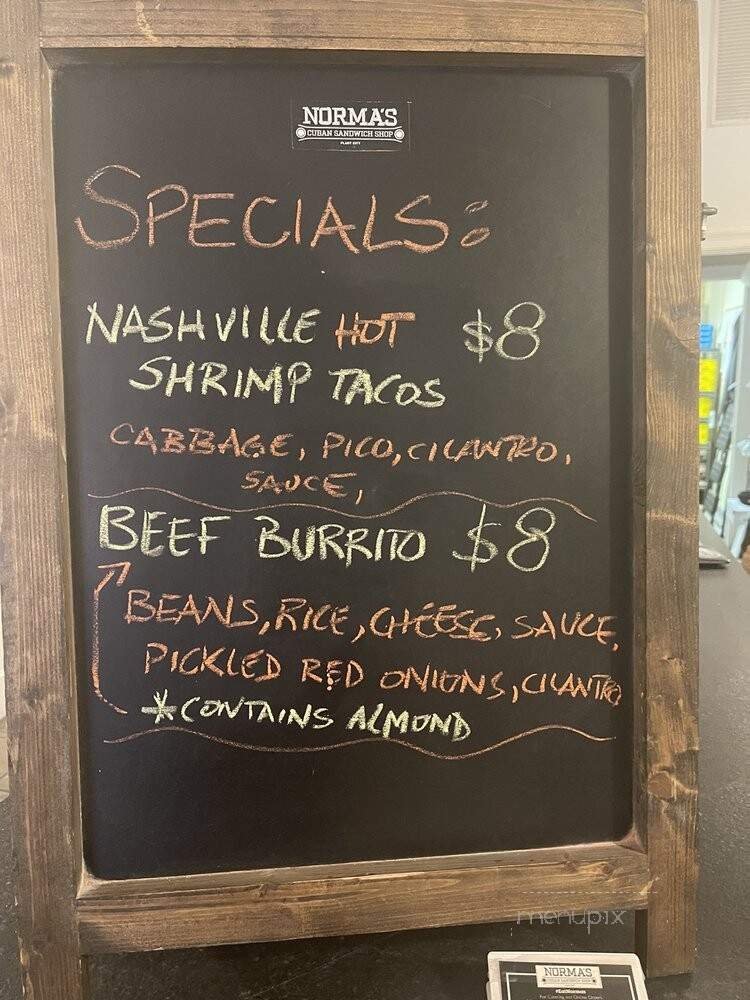 NORMA'S
CUBAN SANDWICH SHOP
PLANT CITY
SPECIALS:
NASHVILLE HOT $8
SHRIMP TACOS
CABBAGE, PICO, CILANTRO,
SAUCE,
BEEF BURRITO $8
BEANS, RICE, CHEESE, SAUCE,
PICKLED RED ONIONS, CILANTRO
*CONTAINS ALMOND
menupix
NORMA'S
CUBAN SANDWICH SHOP